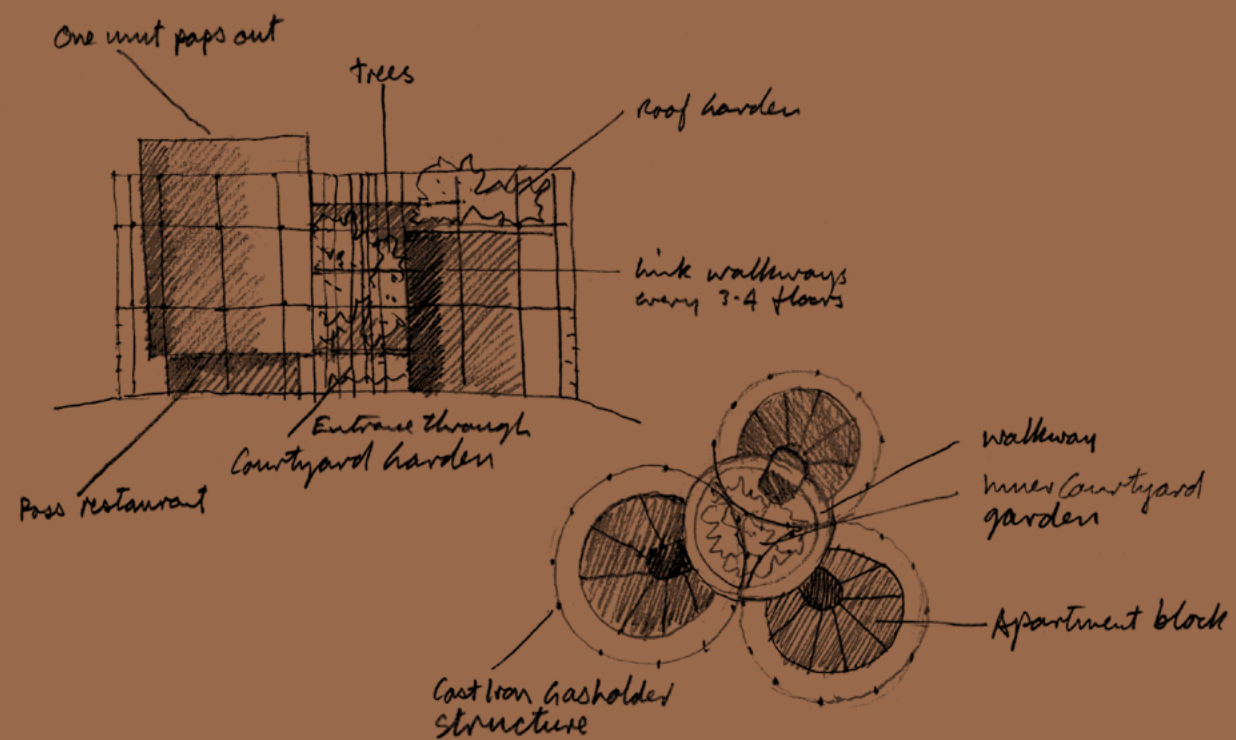 One unit pops out
trees
Roof Garden
link walkways
every 3-4 floors
Entrance through
Courtyard Garden
Poss restaurant
walkway
Inner Courtyard
garden
Apartment block
Cast Iron Gasholder
structure